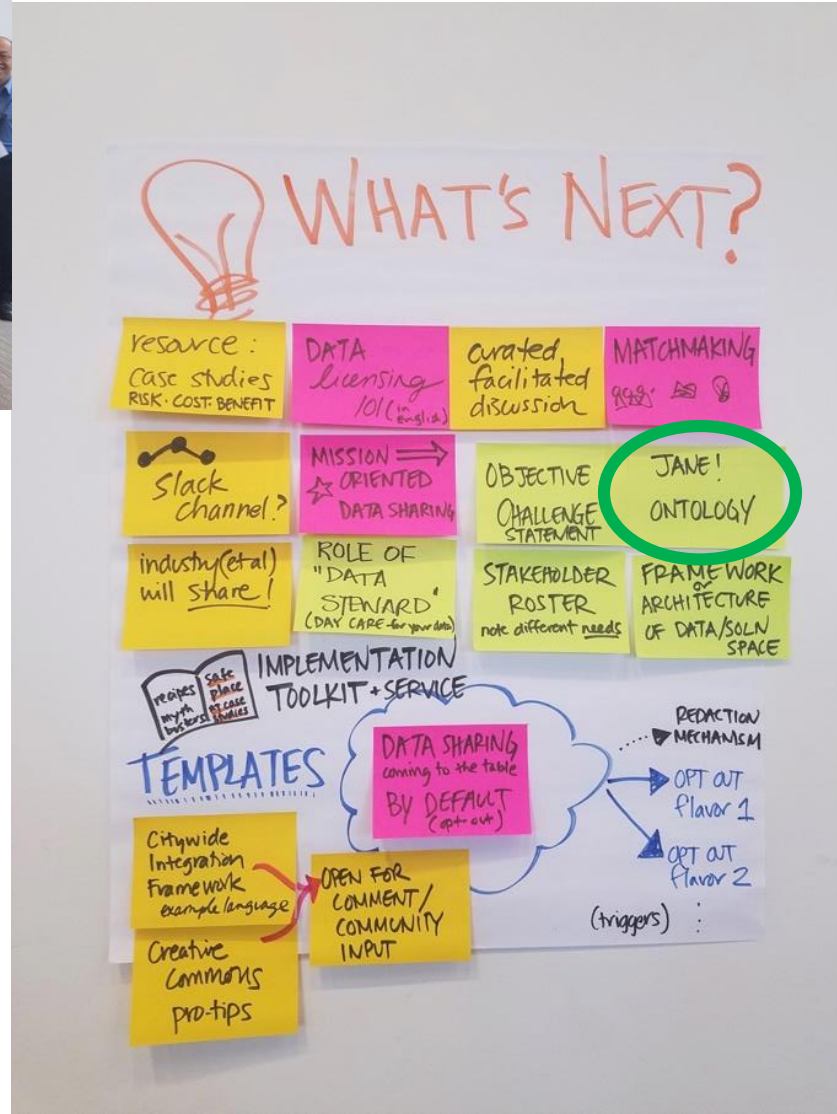 WHAT'S NEXT?
resource:
case studies
RISK · COST · BENEFIT
DATA
licensing
101 (in english)
curated,
facilitated
discussion
MATCHMAKING
Slack
Channel?
MISSION
ORIENTED
DATA SHARING
OBJECTIVE
CHALLENGE
STATEMENT
JANE!
ONTOLOGY
industry (et al)
will share!
ROLE OF
"DATA
STEWARD"
(DAY CARE for your data)
STAKEHOLDER
ROSTER
note different needs
FRAMEWORK
or
ARCHITECTURE
OF DATA/SOLN
SPACE
recipes
myth
busters
safe
place
case
studies
IMPLEMENTATION
TOOLKIT + SERVICE
TEMPLATES
DATA SHARING
coming to the table
BY DEFAULT
(opt-out)
REDACTION
MECHANISM
OPT OUT
flavor 1
OPT OUT
flavor 2
(triggers)
Citywide
Integration
Framework
example language
OPEN FOR
COMMENT/
COMMUNITY
INPUT
Creative
Commons
pro-tips